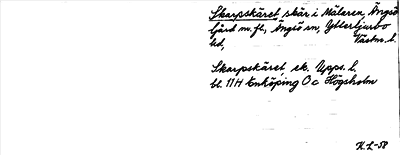 Skarpskäret, skär i Mälaren, Ängsö
fjärd m.fl., Ängsö sn, Yttertjurbo
hd, Västm. l.
Skarpskäret, ek. Upps. l.
bl. 11H Enköping O c Högholm
K.L-58